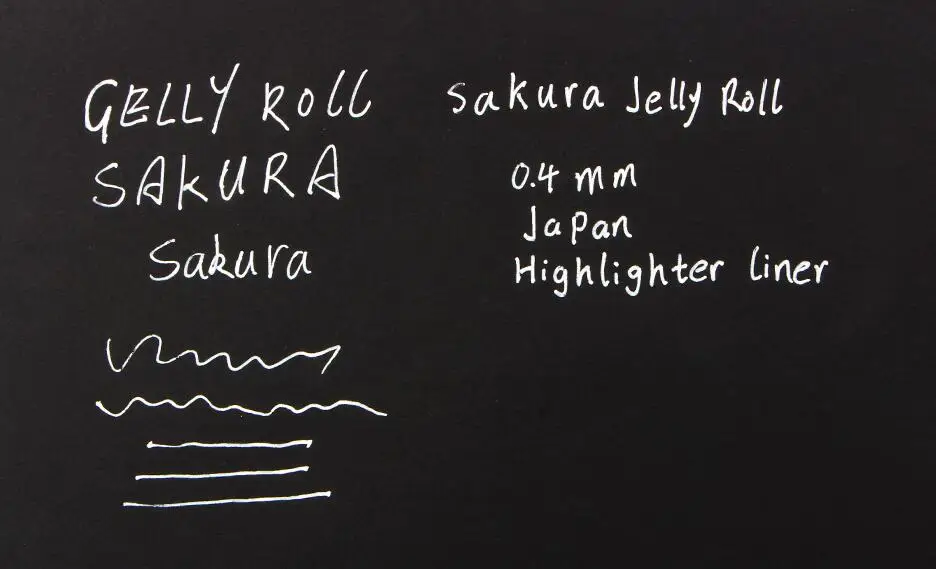 GELLY ROLL
SAKURA
Sakura
Sakura Jelly Roll
0.4 mm
Japan
Highlighter liner